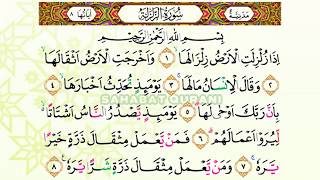 مَدَنِيَّة سُورَةُ الزَّلْزَلَة اٰيَاتُهَا ٨
بِسْمِ اللّٰهِ الرَّحْمٰنِ الرَّحِيْمِ
اِذَا زُلْزِلَتِ الْاَرْضُ زِلْزَالَهَا ١ وَاَخْرَجَتِ الْاَرْضُ اَثْقَالَهَا
٢ وَقَالَ الْاِنْسَانُ مَا لَهَا ٣ يَوْمَئِذٍ تُحَدِّثُ اَخْبَارَهَا ٤
SAHABAT QURANI
بِاَنَّ رَبَّكَ اَوْحٰى لَهَا ٥ يَوْمَئِذٍ يَصْدُرُ النَّاسُ اَشْتَاتًا
لِيُرَوْا اَعْمَالَهُمْ ٦ فَمَنْ يَعْمَلْ مِثْقَالَ ذَرَّةٍ خَيْرًا
يَرَهُ ٧ وَمَنْ يَعْمَلْ مِثْقَالَ ذَرَّةٍ شَرًّا يَرَهُ ٨